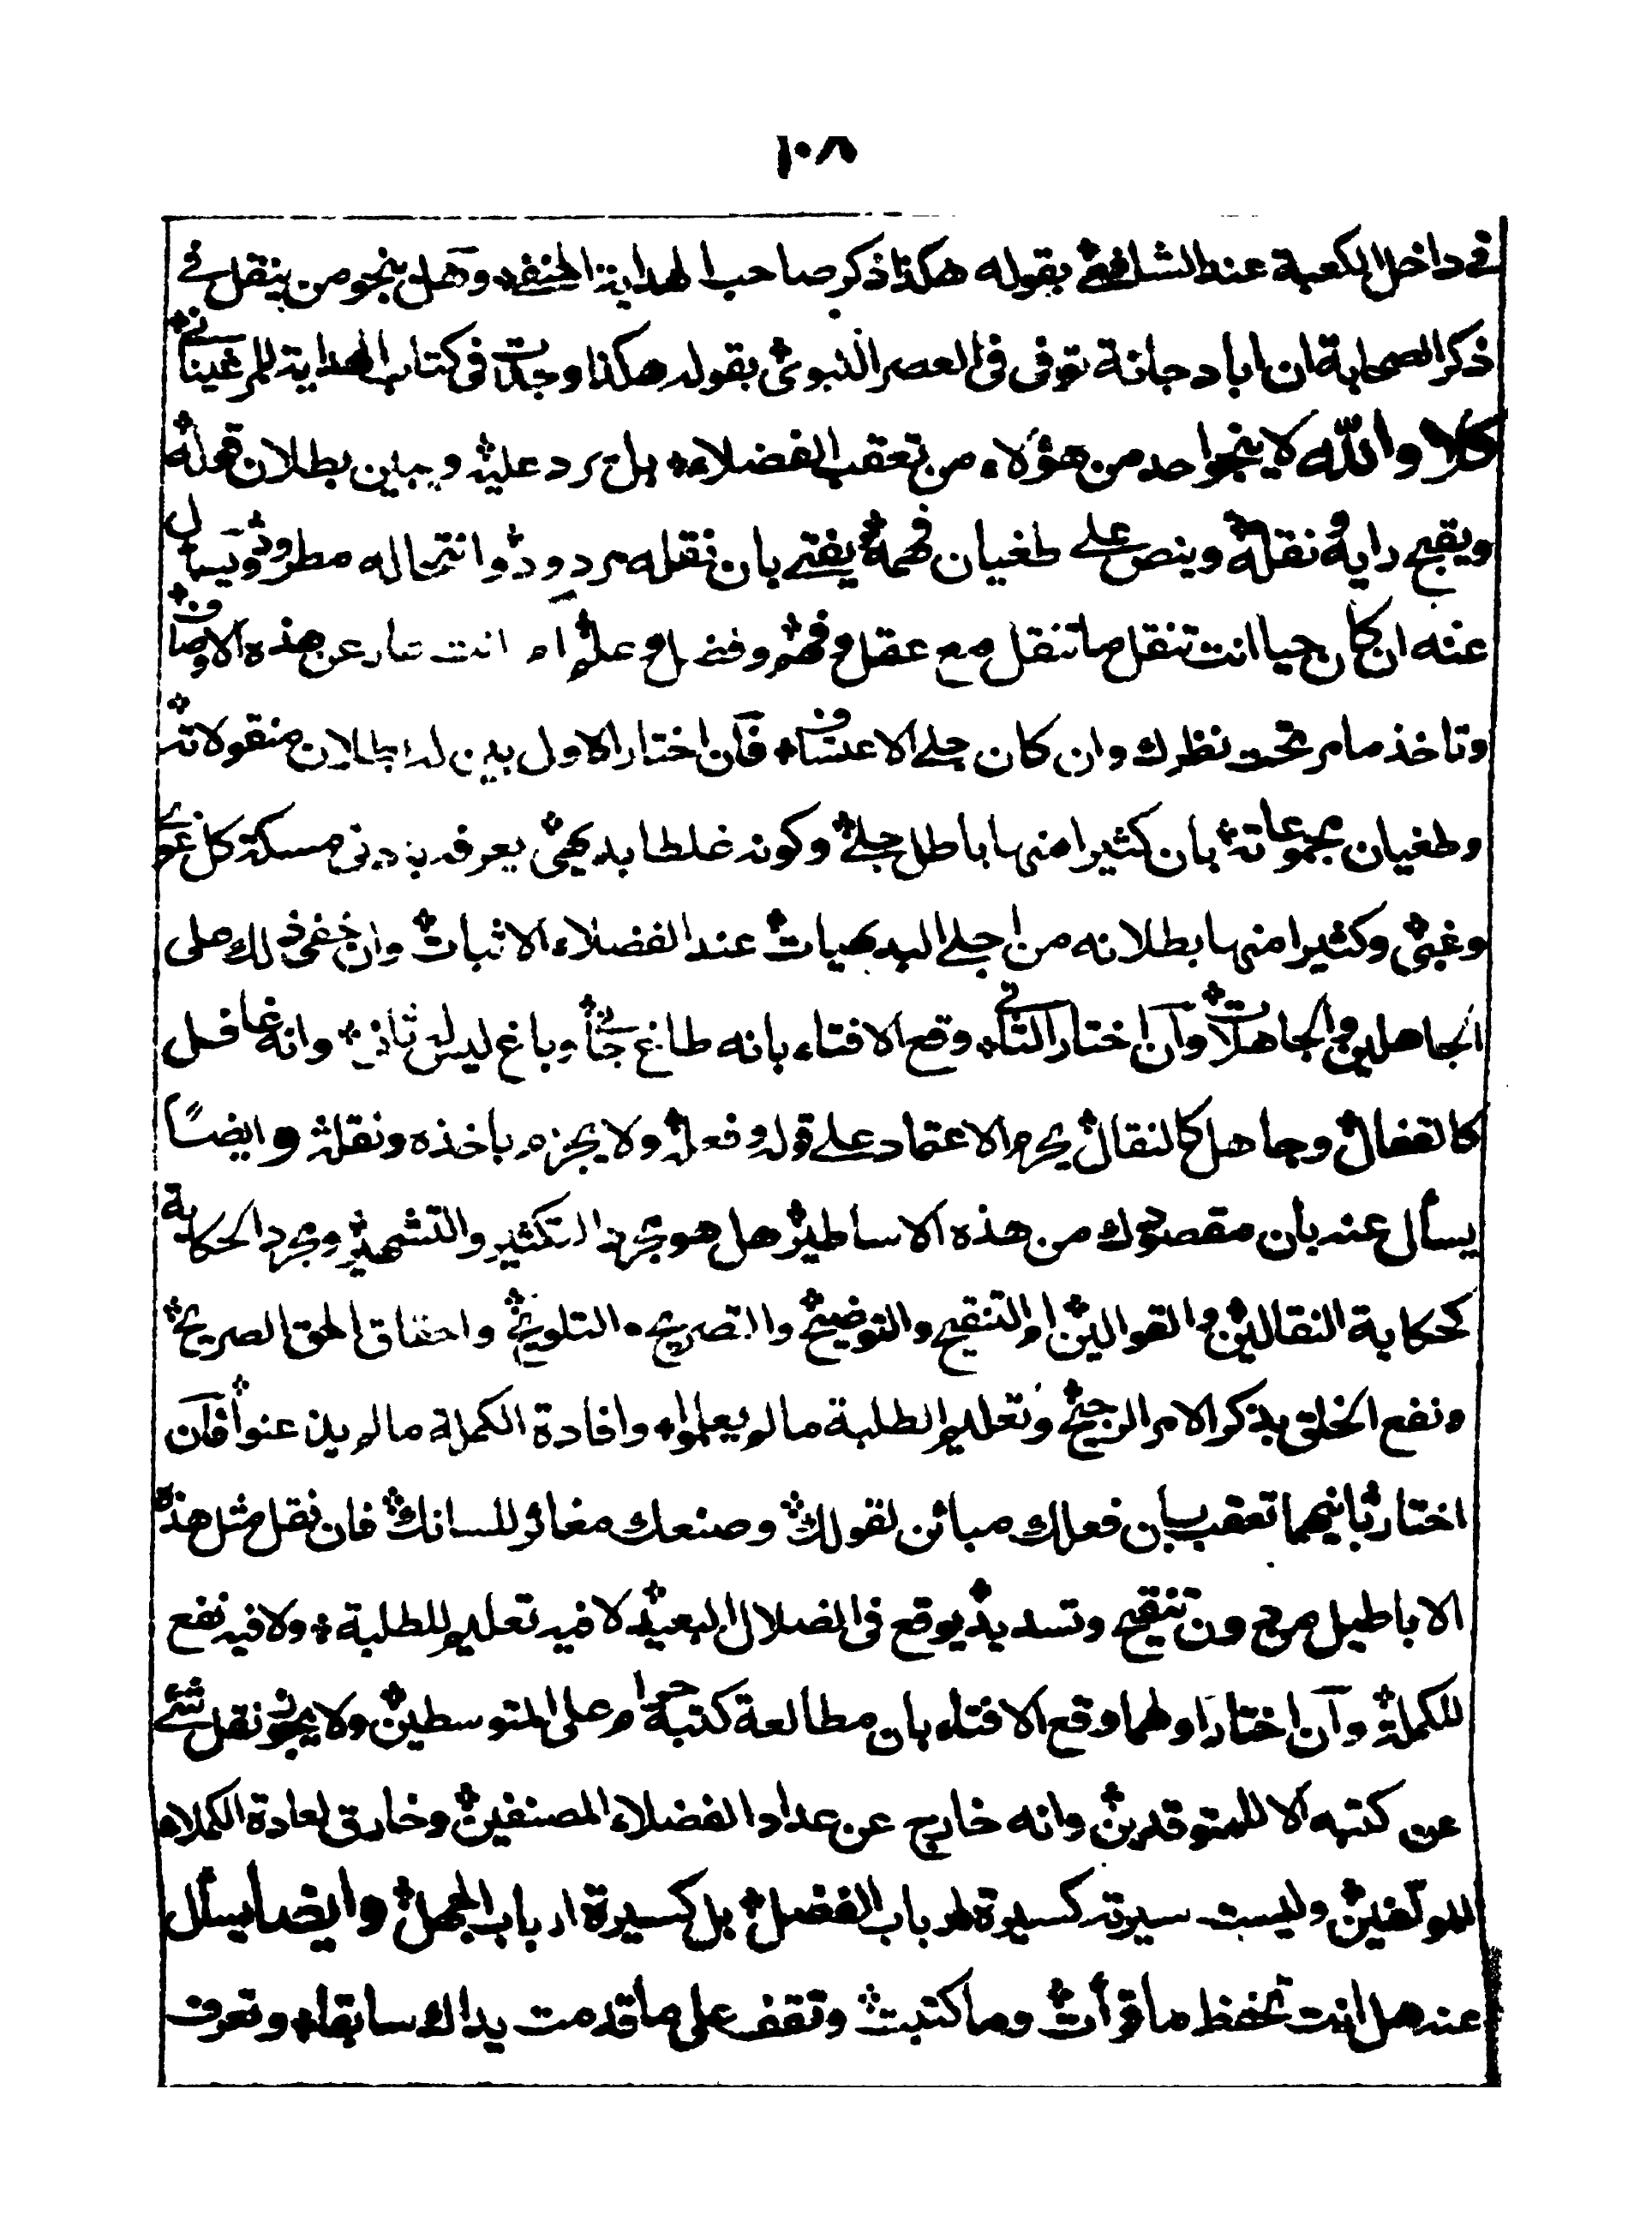 ١٠٨
في داخل الكعبة عند الشافعي بقوله هكذا ذكر صاحب الهداية الحنفي وهل ينجو من ينقل في
ذكر الصحابة ان ابا دجانة توفى في العصر النبوي بقوله هكذا وجدت في كتاب الهداية للمرغيناني
كلا والله لا ينجو احد من هؤلاء من تعقب الفضلاء بل يرد عليه ويبين بطلان قوله
ويقبح راية نقله وينص على طغيان فهمه يفتے بان نقله مردود وانتماله مطرود ويسأل
عنه ان كان حيا انت تنقل ما تنقل مع عقل وفهم وفضل وعلم ام انت عار عن هذه الاوصاف
وتاخذ ما مر تحت نظرك وان كان جلے الاعتساف فان اختار الاول بين له بطلان منقولاته
وطغيان مجموعاته بان كثيرا منها باطل جلے وكونه غلطا بديهي يعرفه بادنى مسكة كل غوي
وغبي وكثيرا منها بطلانه من اجلے البديهيات عند الفضلاء الاثبات وان خفي ذلك على
الجاهلين والجاهلات وان اختار الثاني وقع الافتاء بانه طاغ جاني وباغ ليس له ثاني وانه غافل
كالقفال وجاهل كالنقال يحرم الاعتماد علے قوله وفعله ولا يجزم باخذه ونقله وايضًا
يسأل عنه بأن مقصودك من هذه الاساطير هل هو مجرد التكثير والتشهير ومجرد الحكاية
كحكاية النقالين والقوالين ام التنقيح والتوضيح والتصريح والتلويح واحقاق الحق الصريح
ونفع الخلق بذكر الامر الرجيح وتعليم الطلبة ما لم يعلموا وافادة الكملة ما لم يذعنوا فان
اختار ثانيهما تعقب بان فعلك مبائن لقولك وصنعك مغائر للسانك فان نقل مثل هذه
الاباطيل من دون تنقيح وتسديد يوقع في الضلال البعيد لا فيه تعليم للطلبة ولا فيه نفع
للكملة وان اختار اولهما وقع الافتاء بان مطالعة كتبه حرام على المتوسطين ولا يجوز نقل شئے
عن كتبه الا للمتوقدين وانه خارج عن عداد الفضلاء المصنفين وخارق لعادة الكملاء
المولفين وليست سيرته كسيرة ارباب الفضل بل كسيرة ارباب الجهل وايضا يسأل
عنه هل انت تحفظ ما قرأت وما كتبت وتقف على ما قدمت يداك سابقا وتعرف